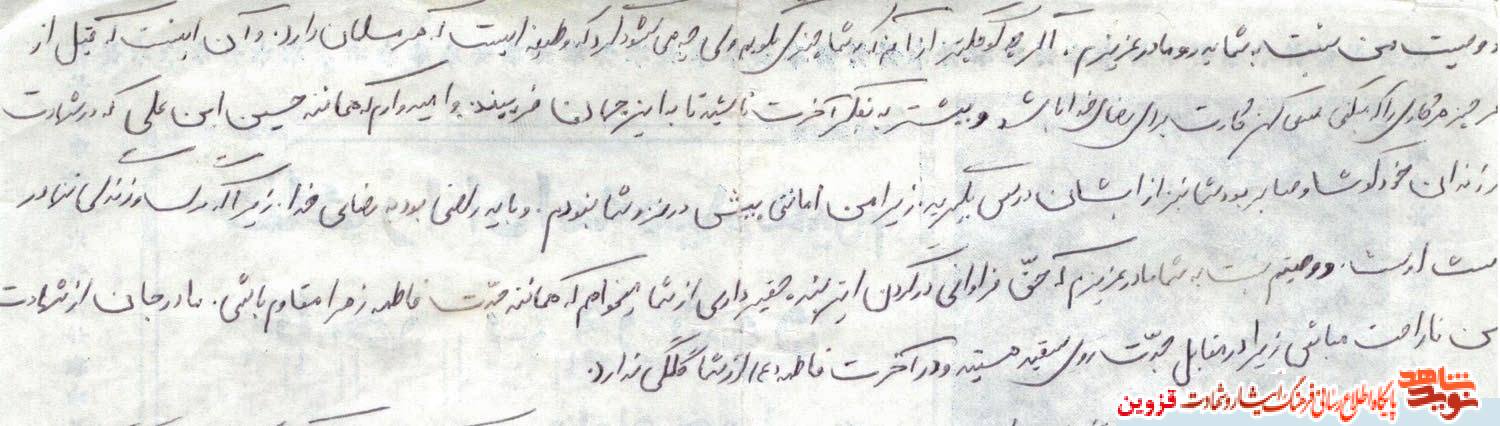 وصیت من نسبت به شما پدر و مادر عزیزم. اگر چه کوچکتر از آنم که به شما چیزی بگویم ولی چه می شود کرد که وظیفه ایست که هر مسلمان دارد. و آن اینست که قبل از
هر چیز هر کاری را که میکنی سعی کن کارت برای رضای خدا باشد و بیشتر به فکر آخرت باشید تا به این جهان فریبنده. و امیدوارم که همانند حسین ابن علی که در شهادت
فرزندان خود کوشا و صابر بود شما نیز از ایشان درس بگیرید. زیرا من امانتی بیش در نزد شما نبودم. و باید راضی بود به رضای خدا. زیرا مرگ و زندگی تنها در
دست اوست. و وصیتم نسبت به شما مادر عزیزم که حق فراوانی در گردن این بنده حقیر داری از شما میخواهم که همانند جدت فاطمه زهرا مقاوم باشی. مادر جان از شهادت
من ناراحت مباش زیرا در مقابل جدت روی سفید هستید و در آخرت فاطمه (ع) از شما گلگی ندارد.
نوید شاهد
پایگاه اطلاع رسانی فرهنگ ایثار و شهادت قزوین